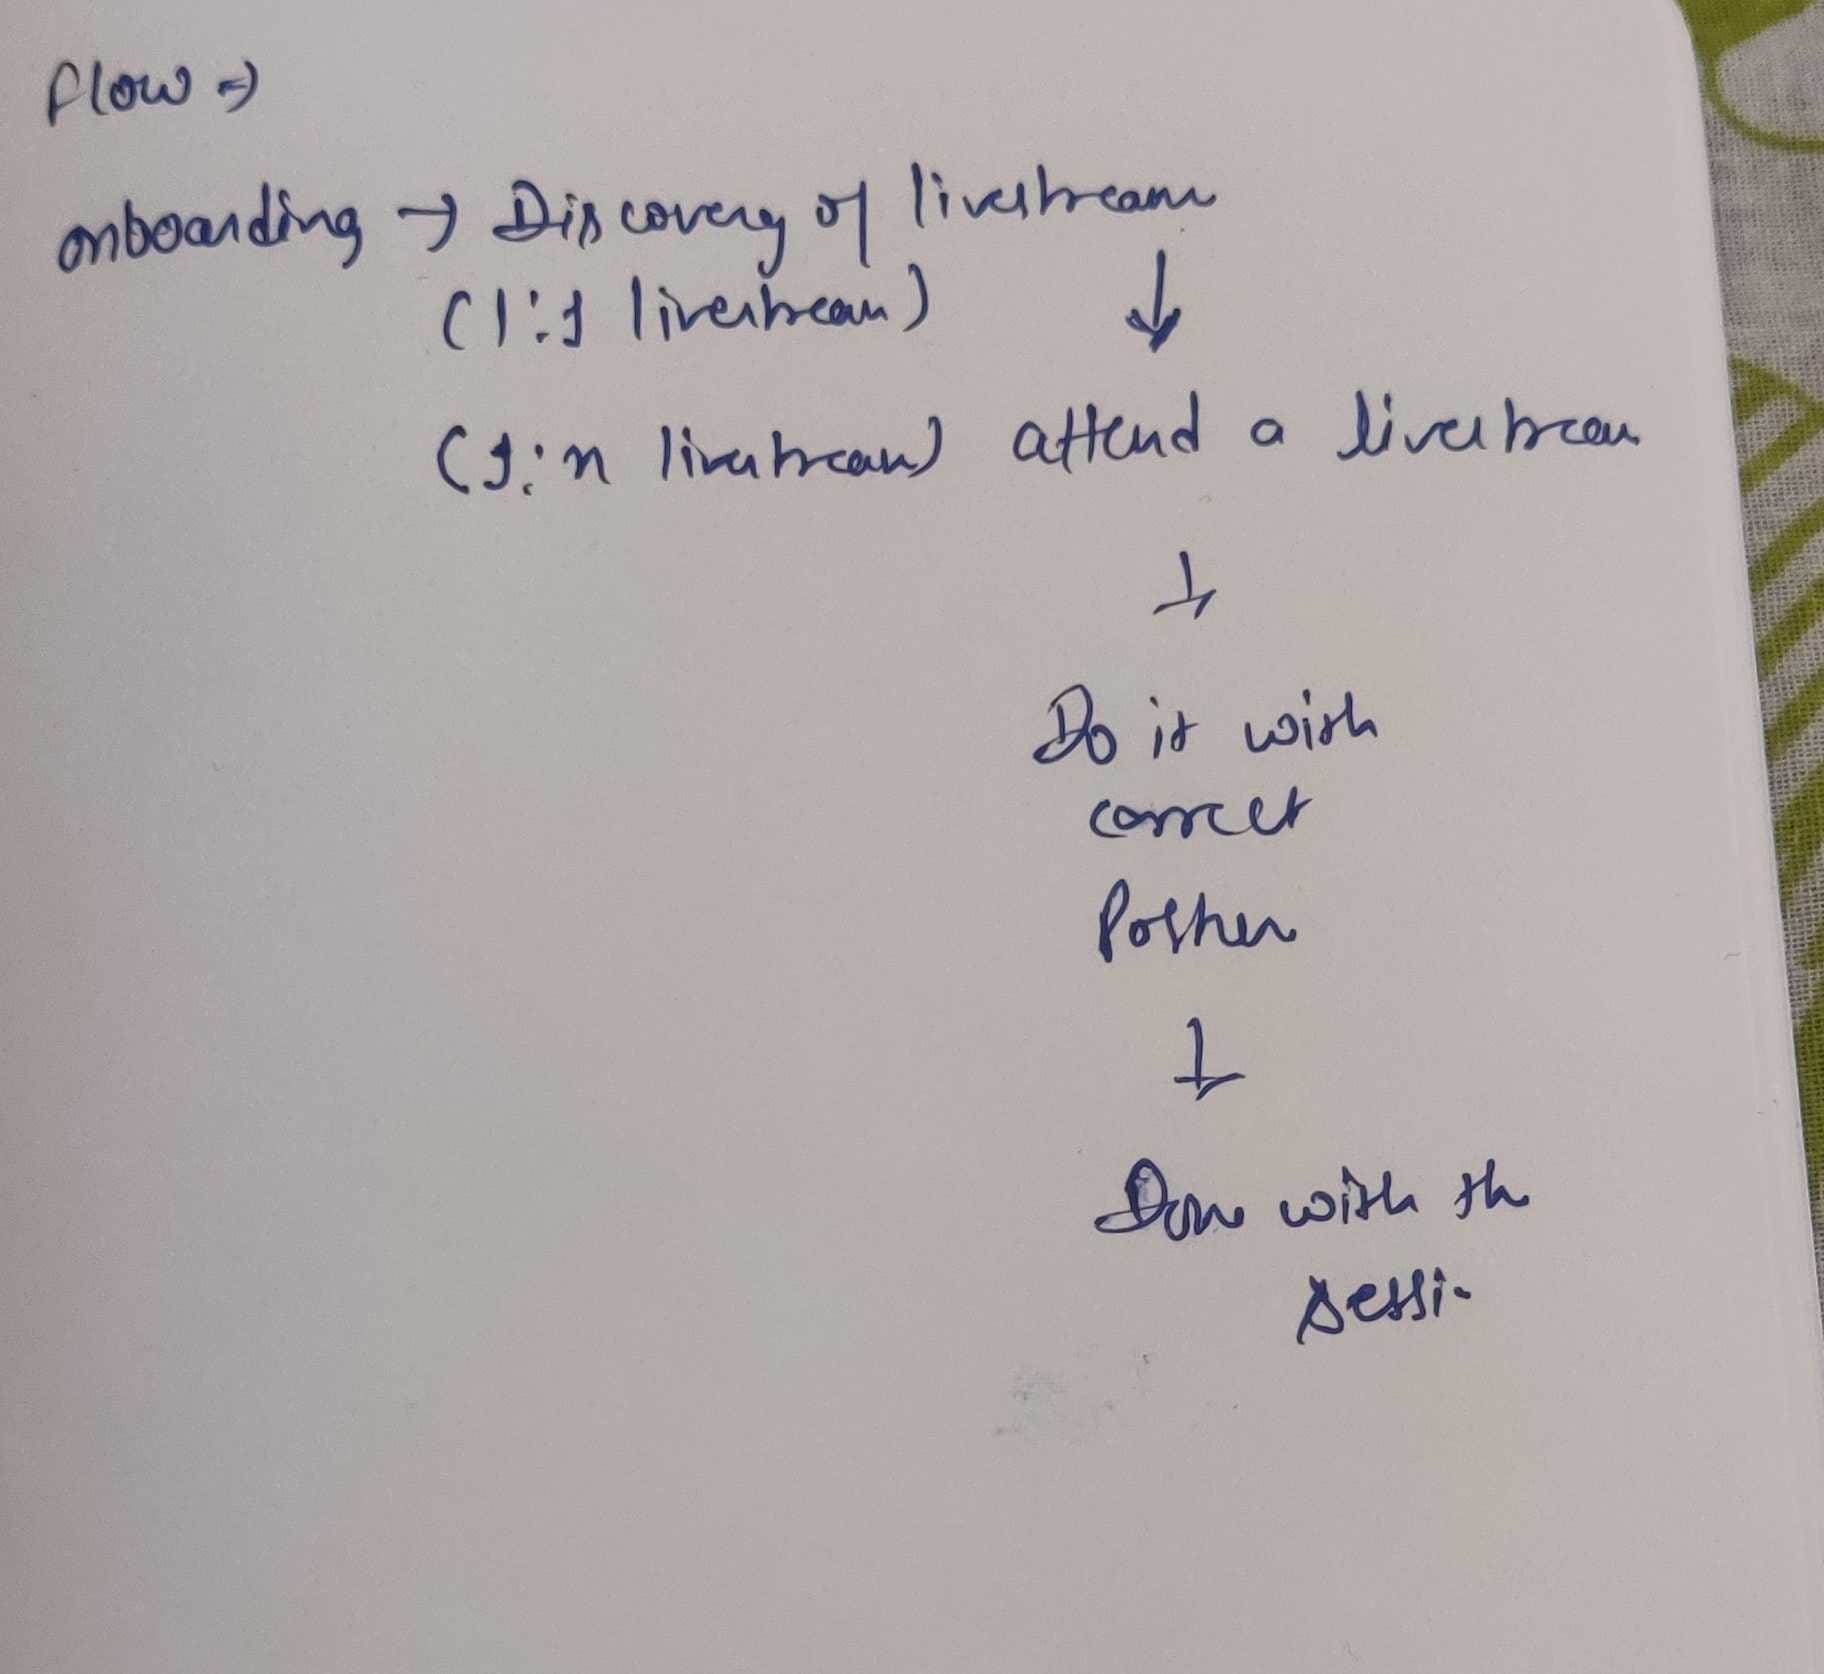 flow ⇒
onboarding → Discovery of livestream
(1:1 livestream)
↓
(1:n livestream) attend a livestream
↓
Do it with
correct
Posture
↓
Done with the
sessi